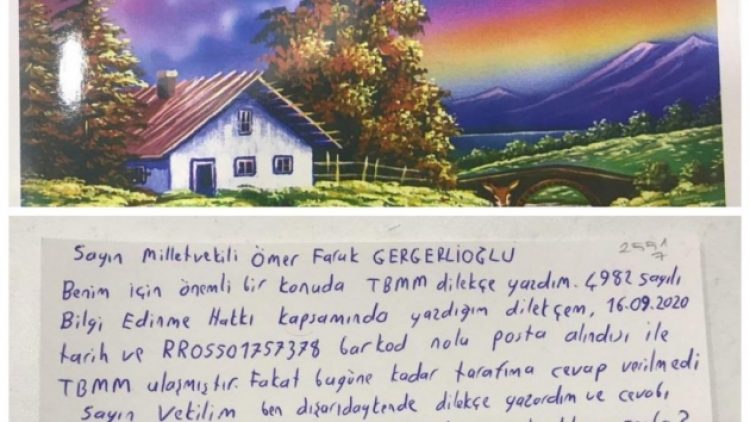 Sayın Milletvekili Ömer Faruk GERGERLİOĞLU
2591
7
Benim için önemli bir konuda TBMM dilekçe yazdım. 4982 sayılı
Bilgi Edinme Hakkı kapsamında yazdığım dilekçem, 16.09.2020
tarih ve RR05501757378 barkod nolu posta alındısı ile
TBMM ulaşmıştır. Fakat bugüne kadar tarafıma cevap verilmedi
Sayın Vekilim ben dışarıdaykende dilekçe yazardım ve cevabı